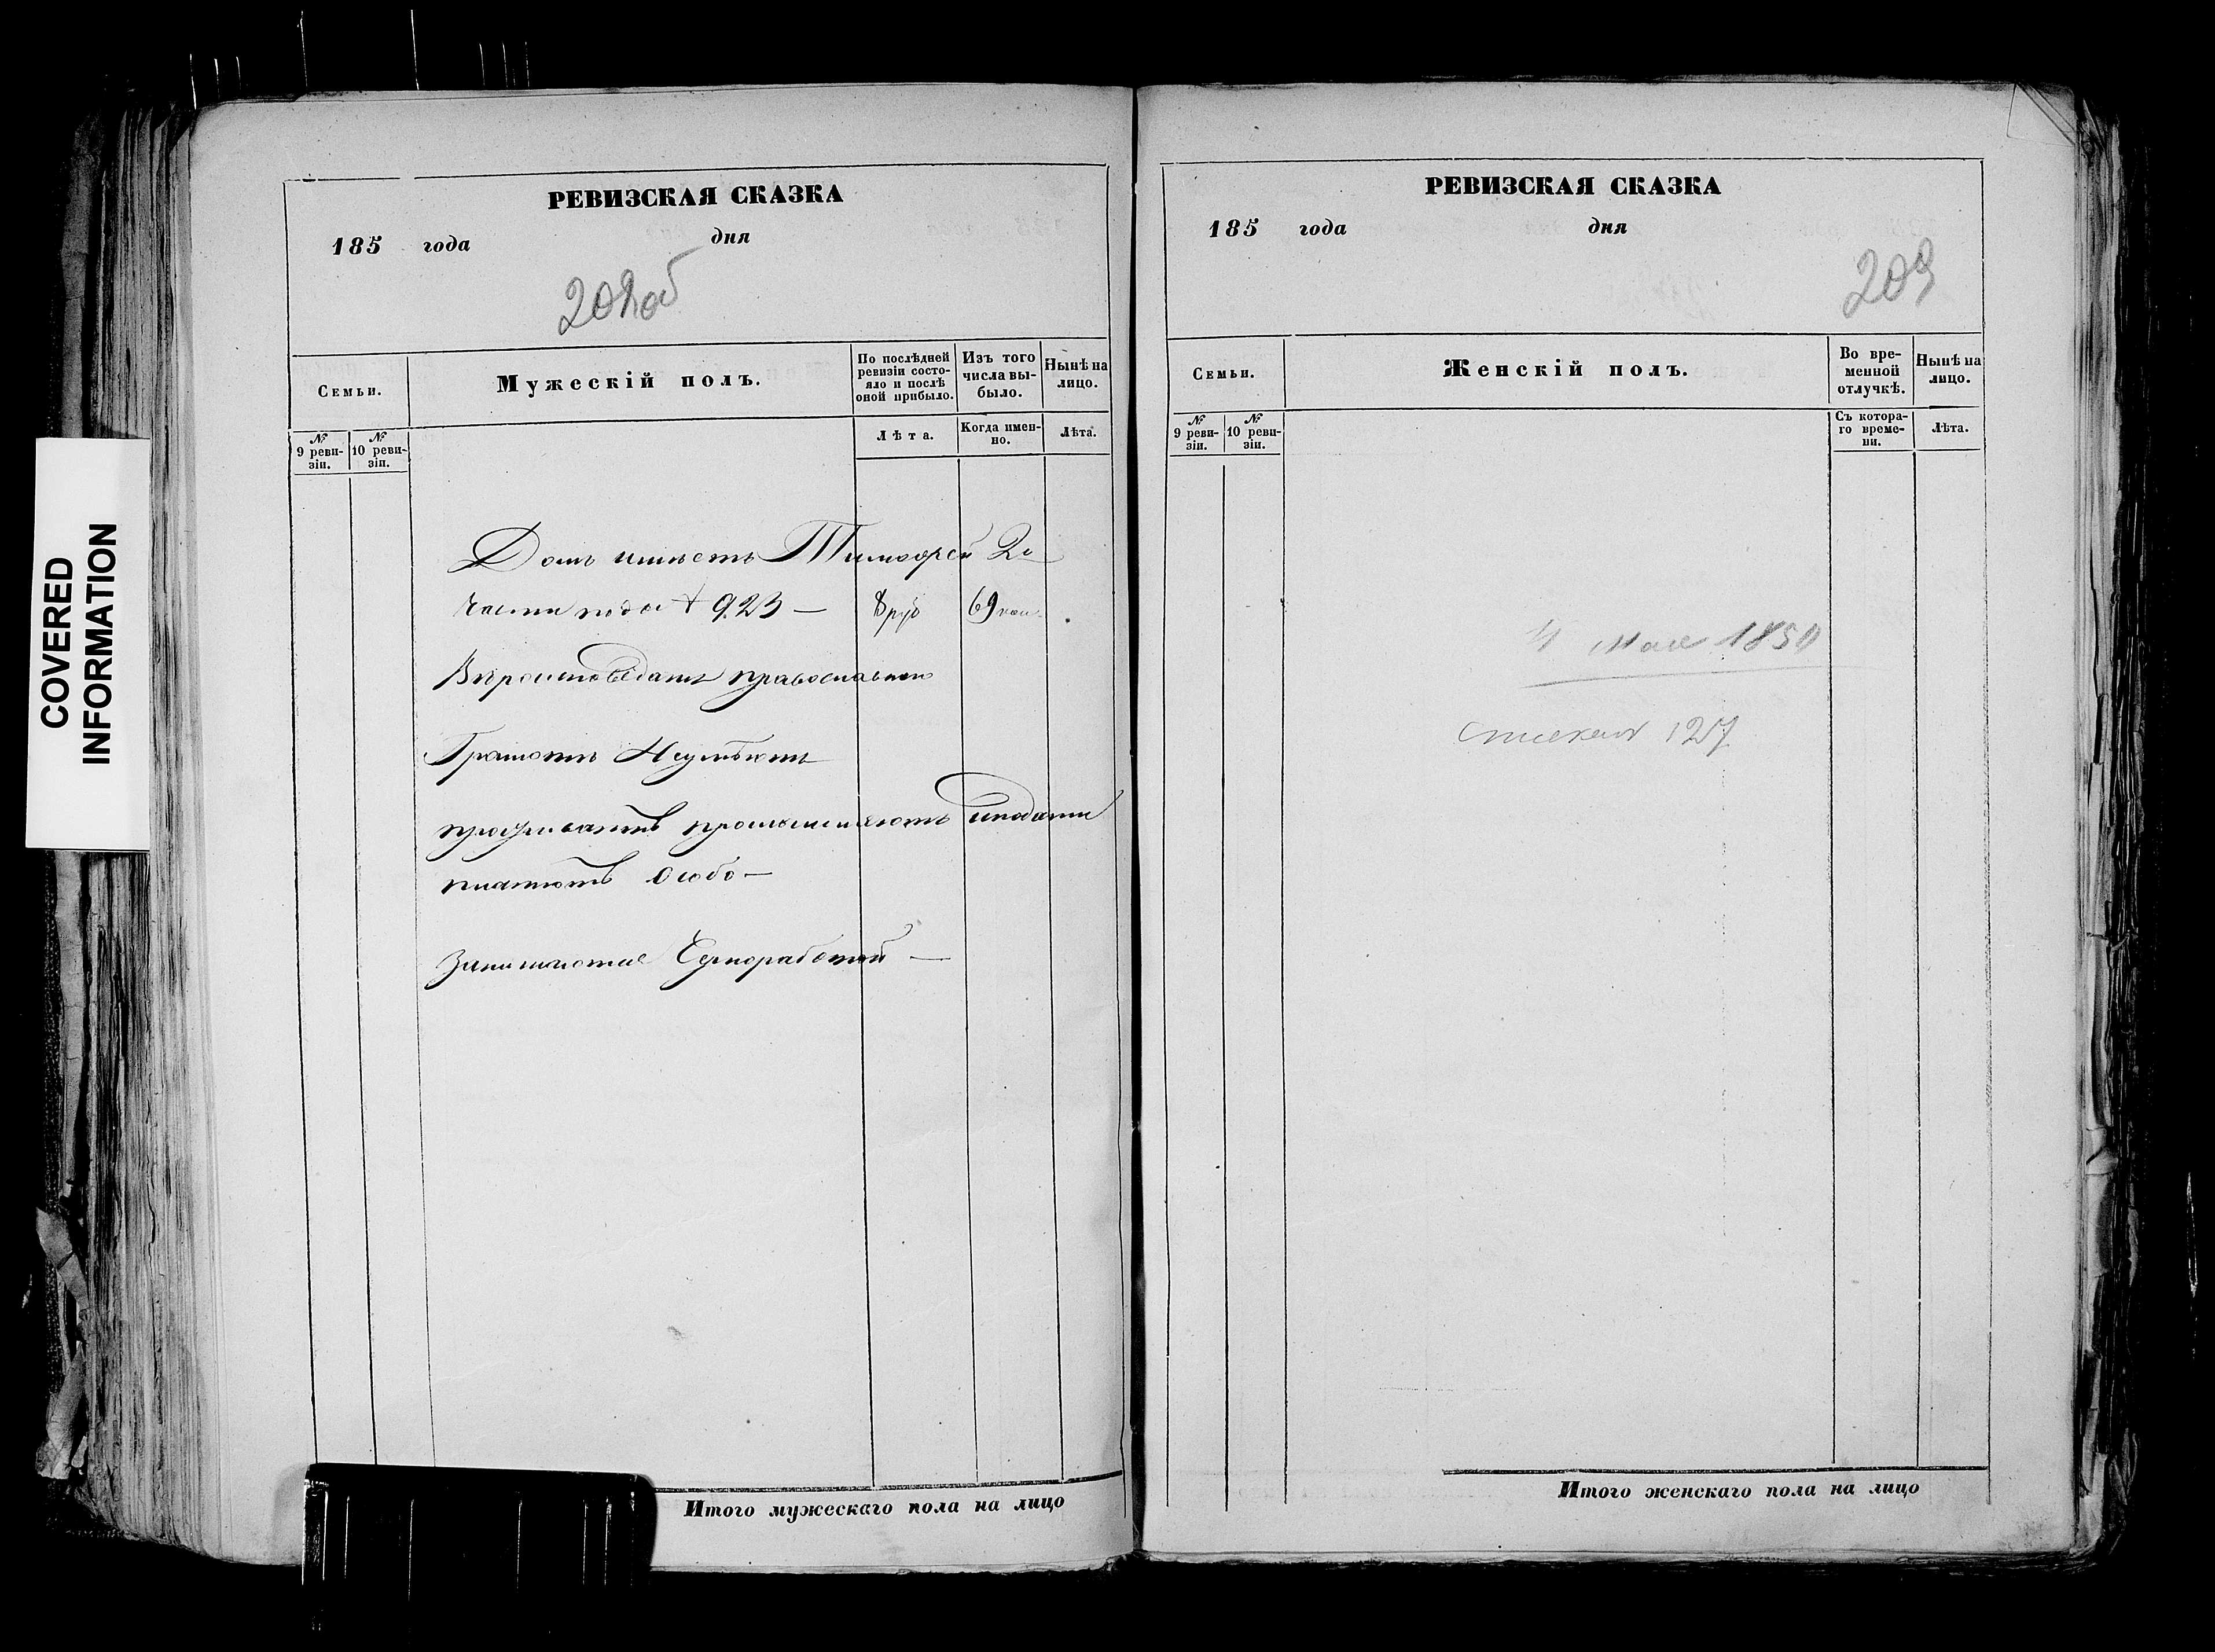 COVERED
INFORMATION
РЕВИЗСКАЯ СКАЗКА
185 года дня
202об
Семьи.
Мужескій полъ.
По послѣдней ревизіи состояло и послѣ оной прибыло.
Изъ того числа выбыло.
Нынѣ на лицо.
№ 9 ревизіи.
№ 10 ревизіи.
Лѣта.
Когда именно.
Лѣта.
Домъ имѣетъ Тимофей 2й
части подъ № 923 — 8 руб 69 коп.
Вѣроисповѣданія православнаго
Грамотѣ Неумѣютъ
проживаютъ промышляютъ иподати
платютъ Особо —
Занимаются Чернработой —
Итого мужескаго пола на лицо
РЕВИЗСКАЯ СКАЗКА
185 года дня
203
Семьи.
Женскій полъ.
Во временной отлучкѣ.
Нынѣ на лицо.
№ 9 ревизіи.
№ 10 ревизіи.
Съ котораго времени.
Лѣта.
мая 185
127
Итого женскаго пола на лицо